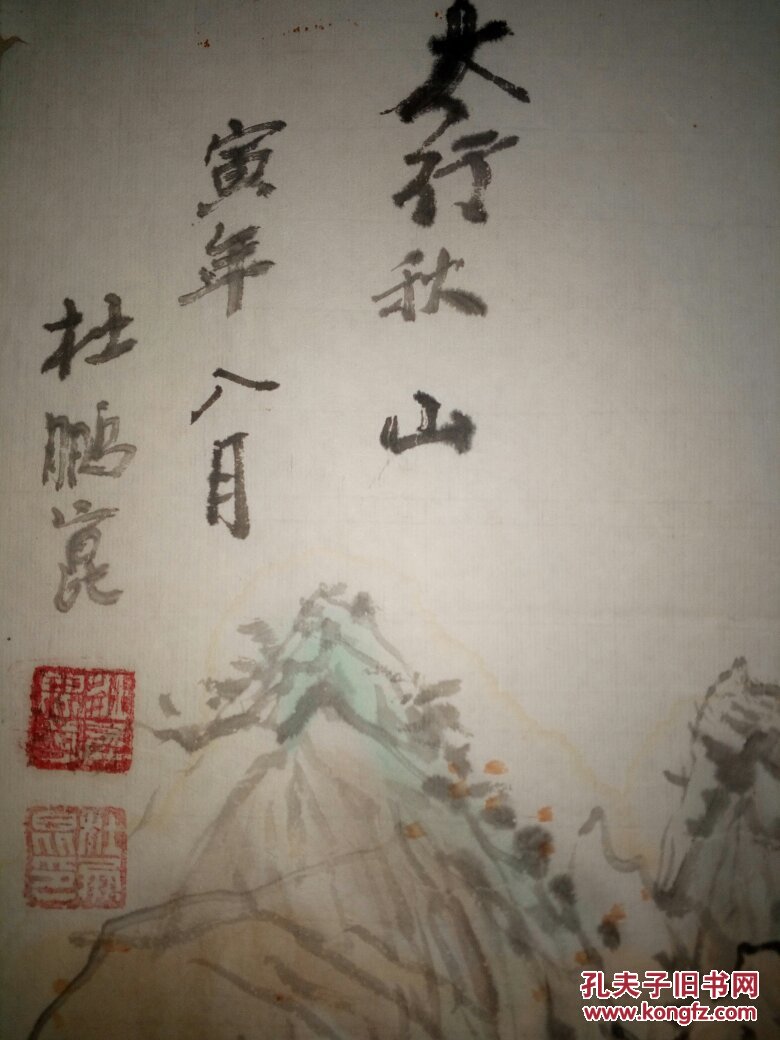 太行秋山
寅年八月
杜鹏崑
孔夫子旧书网
www.kongfz.com